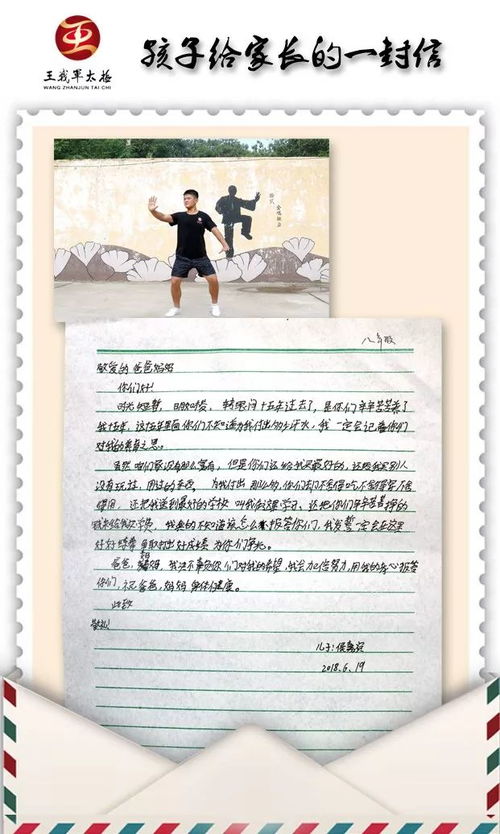 王战军太极
WANG ZHANJUN TAI CHI
孩子给家长的一封信
八年级
敬爱的爸爸妈妈
你们好!
时光如梭, 转眼间十五年过去了, 是你们辛辛苦苦养了
我十五年, 这十五年里面你们不知道为我付出多少汗水, 我一定会记着你们
对我的养育之恩。
虽然咱们家没有那么富有, 但是你们还给我买最好的, 还把我买别人
没有玩过, 用过的东西, 为我付出那么多, 你们却不舍得吃不舍得穿不舍
得用, 还把我送到最好的学校 叫我在这里学习, 还把你们辛辛苦苦挣的
钱交给我买学费, 我真的不知道该怎么报答你们, 我发誓一定会在这里
好好练拳 争取打出好成绩 为你们争光。
爸爸, 妈妈, 我决不辜负你们对我的希望, 我会加倍努力, 用我的孝心报答
你们, 祝爸爸, 妈妈 身体健康。
此致
敬礼
儿子:
2018.6.19